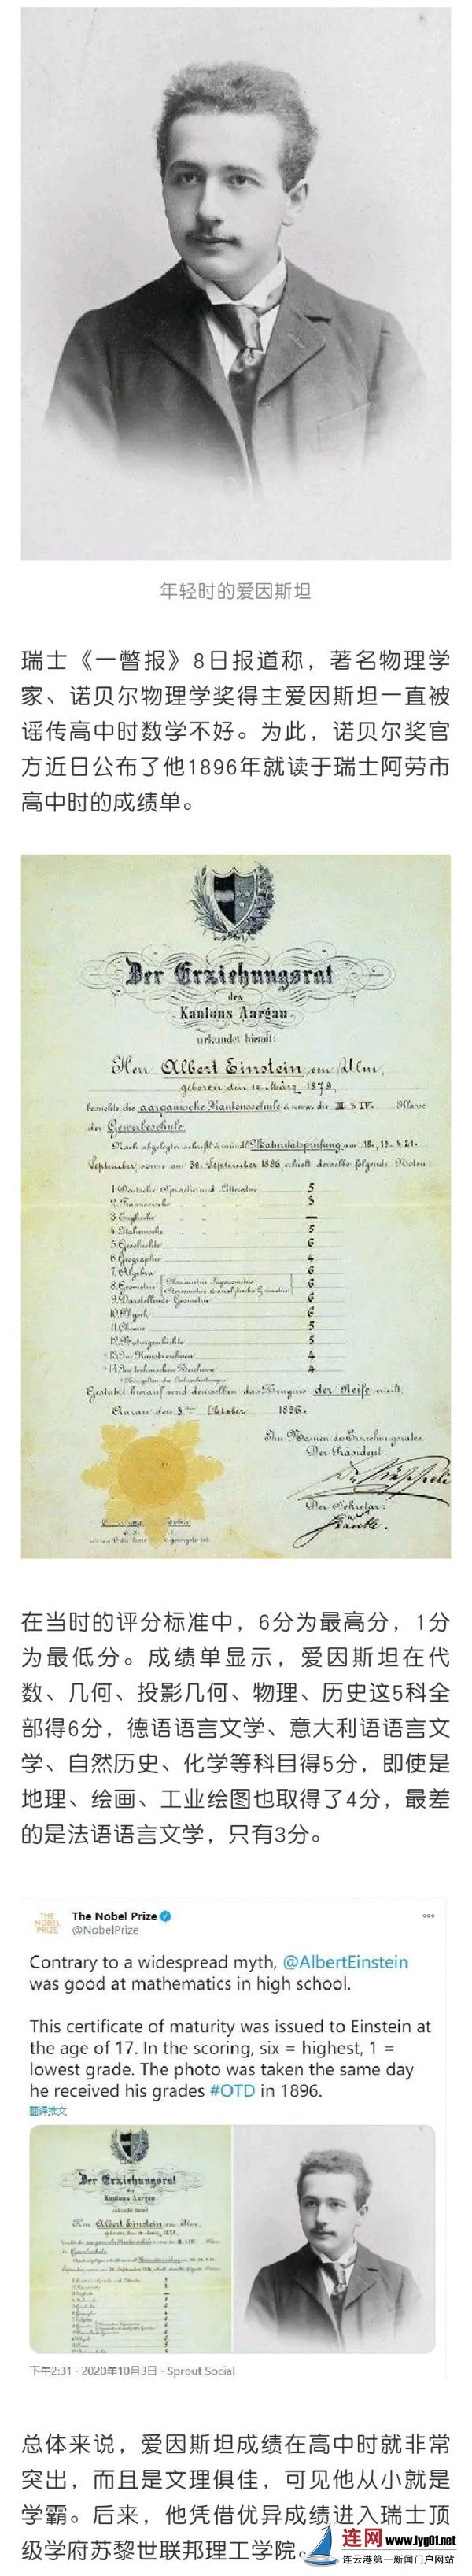 年轻时的爱因斯坦
瑞士《一瞥报》8日报道称，著名物理学
家、诺贝尔物理学奖得主爱因斯坦一直被
谣传高中时数学不好。为此，诺贝尔奖官
方近日公布了他1896年就读于瑞士阿劳市
高中时的成绩单。
Der Erziehungsrat
des
Kantons Aargau
urkundet hiermit:
Herr Albert Einstein von Ulm,
geboren den 14. März 1879,
besuchte die aargauische Kantonsschule & zwar die III. & IV. Klasse
der Gewerbeschule.
Nach abgelegter schriftl. & mündl. Maturitätsprüfung am 18., 19. & 21.
September, sowie am 30. September 1896, erhielt derselbe folgende Noten:
1. Deutsche Sprache und Litteratur 5
2. Französische 3
3. Englische —
4. Italienische 5
5. Geschichte 6
6. Geographie 4
7. Algebra 6
8. Geometrie 6
9. Darstellende Geometrie 6
10. Physik 6
11. Chemie 5
12. Naturgeschichte 5
* 13. Im Kunstzeichnen 4
* 14. Im technischen Zeichnen 4
Gestützt hierauf wird demselben das Zeugnis der Reife erteilt.
Aarau den 3ten Oktober 1896.
Im Namen des Erziehungsrates,
Der Präsident:
Der Sekretär:
在当时的评分标准中，6分为最高分，1分
为最低分。成绩单显示，爱因斯坦在代
数、几何、投影几何、物理、历史这5科全
部得6分，德语语言文学、意大利语语言文
学、自然历史、化学等科目得5分，即使是
地理、绘画、工业绘图也取得了4分，最差
的是法语语言文学，只有3分。
THE
NOBEL
PRIZE
The Nobel Prize
@NobelPrize
Contrary to a widespread myth, @AlbertEinstein
was good at mathematics in high school.
This certificate of maturity was issued to Einstein at
the age of 17. In the scoring, six = highest, 1 =
lowest grade. The photo was taken the same day
he received his grades #OTD in 1896.
翻译推文
Der Erziehungsrat
des
Kantons Aargau
Herr Albert Einstein von Ulm,
下午2:31 · 2020年10月3日 · Sprout Social
总体来说，爱因斯坦成绩在高中时就非常
突出，而且是文理俱佳，可见他从小就是
学霸。后来，他凭借优异成绩进入瑞士顶
级学府苏黎世联邦理工学院。
连网 www.lyg01.net
连云港第一新闻门户网站